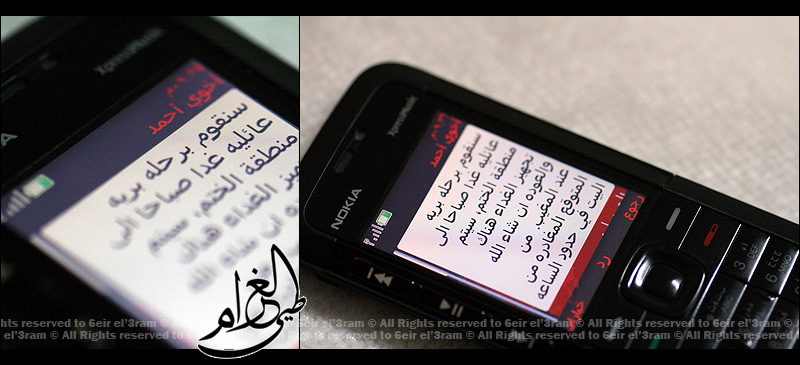 XpressMusic
أخوي أحمد
ستقوم برحله بريه
عائليه غدا صباحا الى
منطقة الختم. سيتم
الغداء هناك
ان شاء الله
طيّر الغرام
NOKIA
XpressMusic
أخوي أحمد
ستقوم برحله بريه
عائليه غدا صباحا الى
منطقة الختم. سيتم
تجهيز الغداء هناك
والعوده ان شاء الله
عند المغيب. من
المتوقع المغادره من
البيت في حدود الساعه
رجوع
رد
3 DEF
2
hts reserved to 6eir el'3ram © All Rights reserved to 6eir el'3ram © All Rights reserved to 6eir el'3ram © All Rights reserved to 6eir el'3ram ©
6eir el'3ram © All Rights reserved to 6eir el'3ram © All Rights reserved to 6eir el'3ram © All Rights reserved to 6eir el'3ram © All